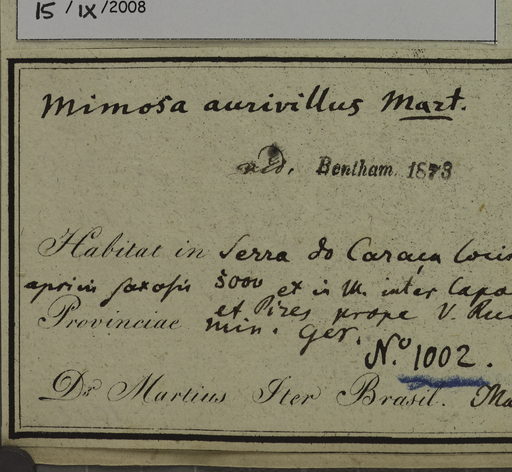 15 / IX /2008
Mimosa aurivillus Mart.
vid. Bentham. 1873
Habitat in Serra do Caraça locis
apricis saxosis 5000 et in M. inter Capa
et Pires prope V. Ric
Provinciae min. Ger.
N.o 1002.
Dr Martius Iter Brasil. Ma